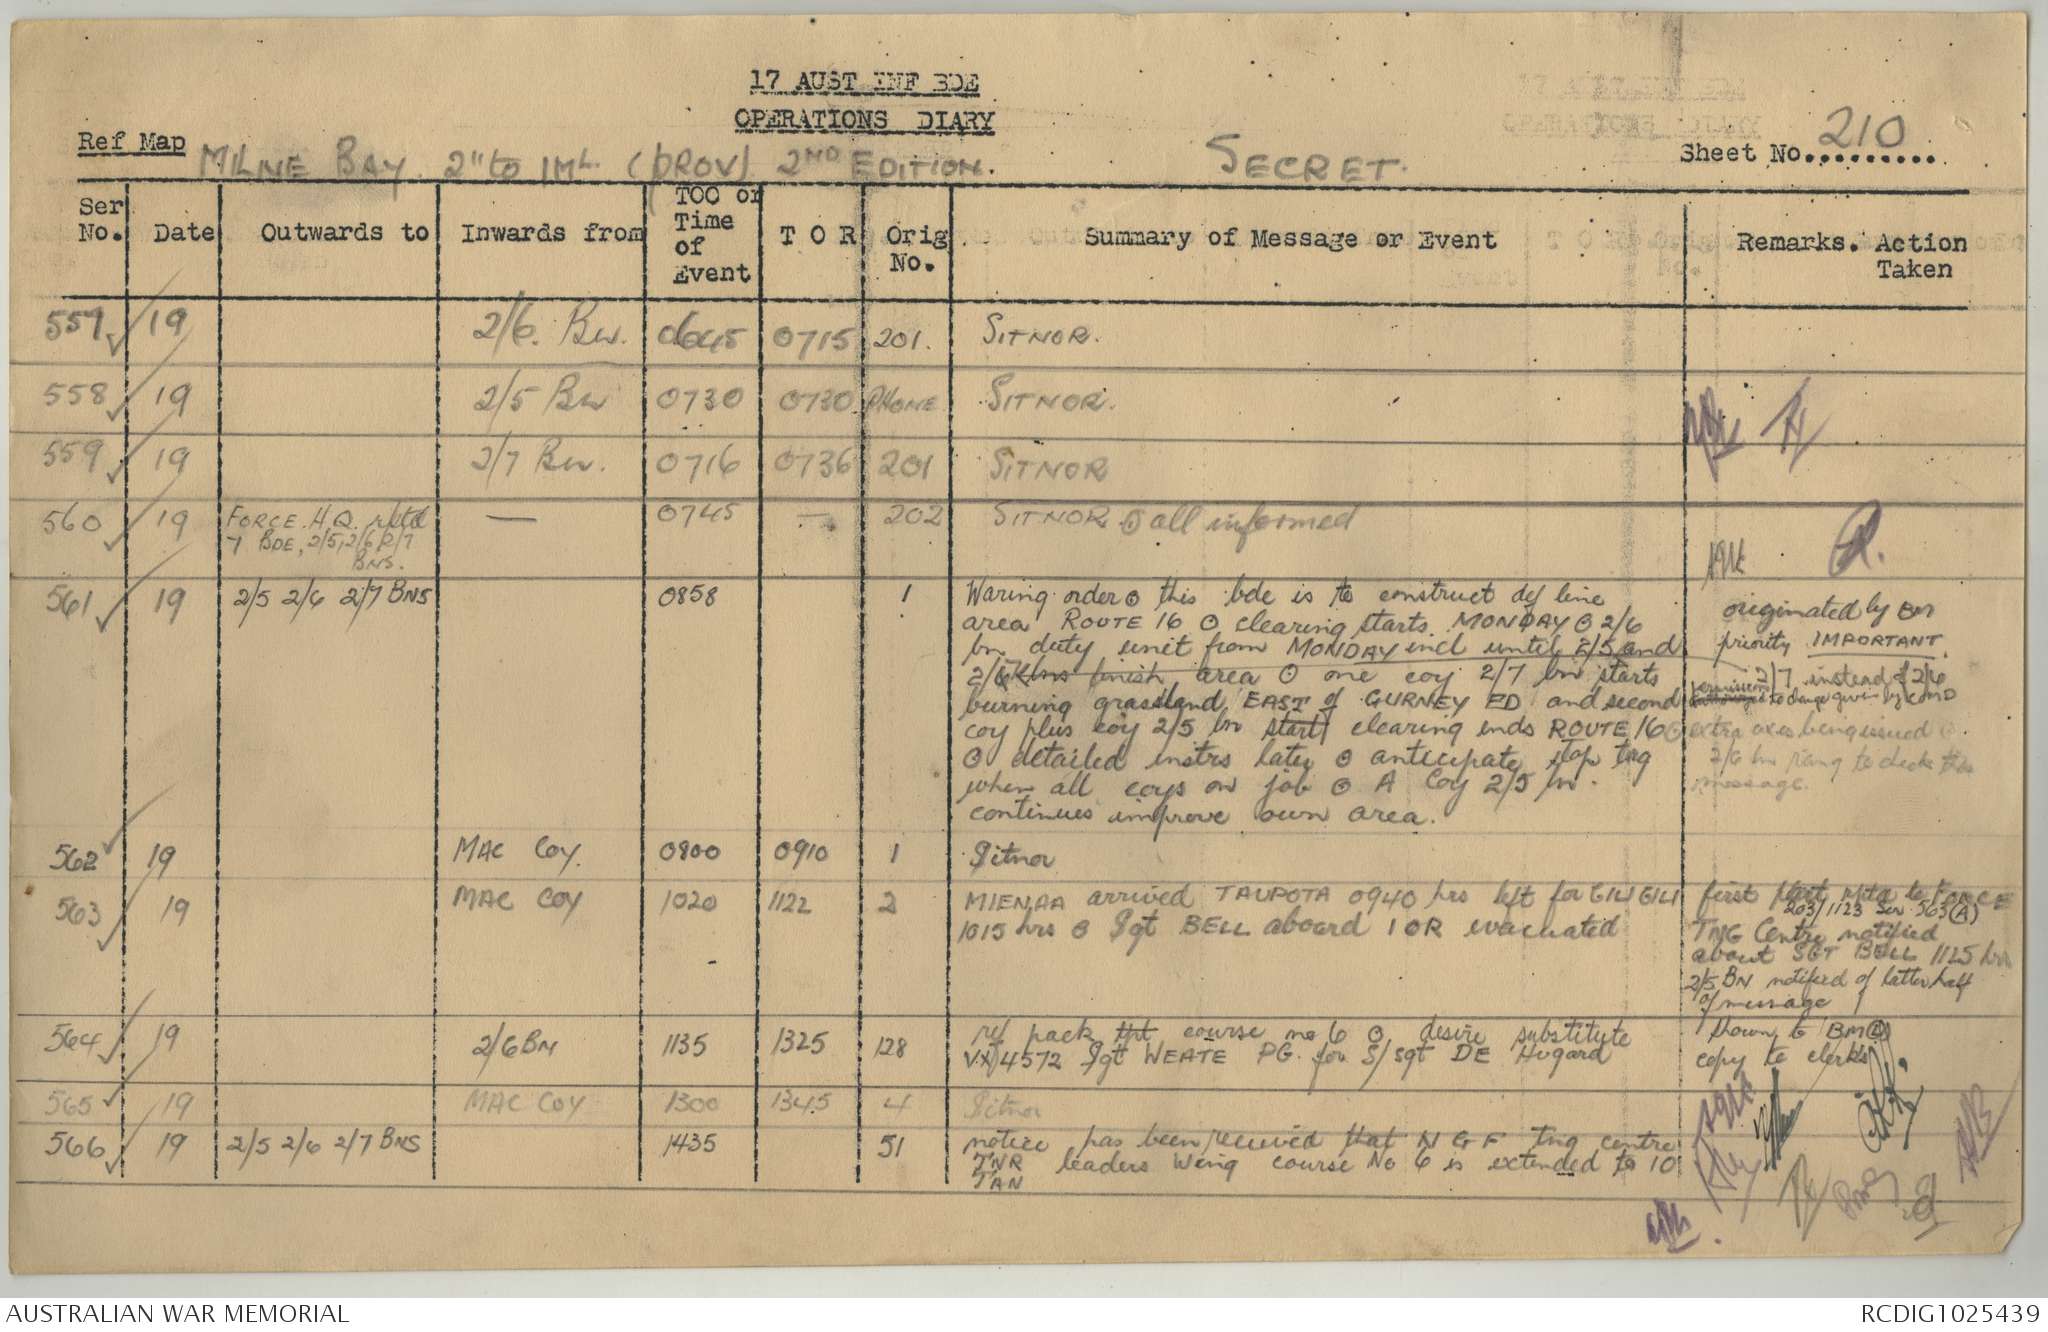 17 AUST INF BDE
OPERATIONS DIARY
Ref Map MILNE BAY 2" to 1ML (PROV) 2ND EDITION. SECRET. Sheet No. 210
Ser No. Date Outwards to Inwards from TOO or Time of Event T O R Orig No. Summary of Message or Event Remarks. Action Taken
557 19 2/6. Bn. 0645 0715 201. SITNOR.
558 19 2/5 Bn 0730 0730 PHONE SITNOR.
559 19 2/7 Bn. 0716 0736 201 SITNOR
560 19 FORCE H.Q. rptd — 0745 — 202 SITNOR ⊙ all informed
7 BDE, 2/5, 2/6, 2/7
BNS.
561 19 2/5 2/6 2/7 BNS 0858 1 Waring order ⊙ this bde is to construct def line
area ROUTE 16 ⊙ clearing starts MONDAY ⊙ 2/6
bn duty unit from MONDAY incl until 2/5 and
2/6 bns finish area ⊙ one coy 2/7 bn starts
burning grassland EAST of GURNEY ED and second
coy plus coy 2/5 bn start clearing ends ROUTE 16 ⊙
⊙ detailed instrs later ⊙ anticipate stop tng
when all coys on job ⊙ A Coy 2/5 bn
continues improve own area.
originated by BM
priority IMPORTANT.
2/7 instead of 2/6
permission to change given by COMD
extra axes being issued ⊙
2/6 bn rang to check this
message.
562 19 MAC COY. 0800 0910 1 Sitnor
563 19 MAC COY 1020 1122 2 MIENAA arrived TAUPOTA 0940 hrs left for GILI GILI
1015 hrs ⊙ Sgt BELL aboard 1 OR evacuated
first part rptd to FORCE
203/1123 Ser 563(A)
TNG Centre notified
about SGT BELL 1125 hrs
2/5 BN notified of latter half
of message
564 19 2/6 BN 1135 1325 128 ref pack tpt course no 6 ⊙ desire substitute
VX14572 Sgt WEATE PG for S/Sgt DE Hugard
Shown to BM
copy to clerks
565 19 MAC COY 1300 1345 4 Sitnor
566 19 2/5 2/6 2/7 BNS 1435 51 notice has been received that NGF tng centre
JNR leaders Wing course No 6 is extended to 10
JAN
AUSTRALIAN WAR MEMORIAL RCDIG1025439